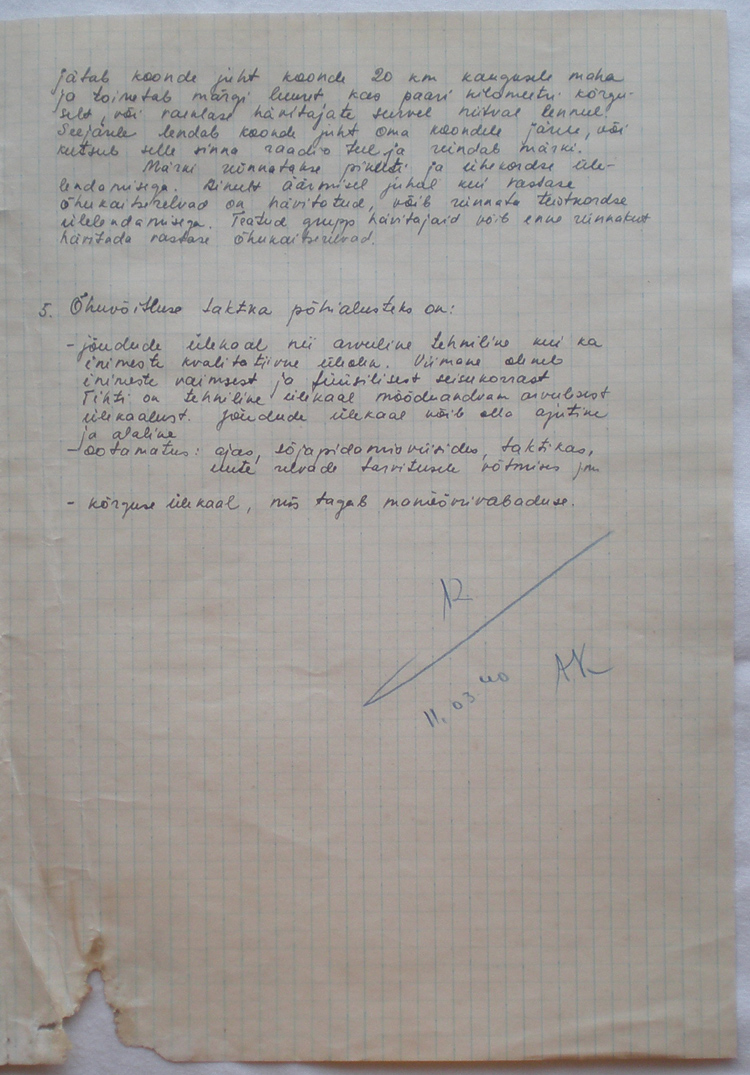 jätab koonde juht koonde 20 km kaugusele maha
ja toimetab märgi luuret kas paari kilomeetri kõrgu-
selt, või vaenlase hävitajate survel niitval lennul.
Seejärele lendab koonde juht oma koondele järele, või
kutsub selle sinna raadio teel ja ründab märki.
Märki rünnatakse pikeelt ja ühekordse üle-
lendamisega. Ainult äärmisel juhul kui vastase
õhukaitserelvad on hävitatud, võib rünnata teistkordse
ülelendamisega. Teatud grupp hävitajaid võib enne rünnakut
hävitada vastase õhukaitserelvad.
5. Õhuvõitluse taktika põhialusteks on:
- jõudude ülekaal nii arvuline tehniline kui ka
inimeste kvalitatiivne ülekaal. Viimane oleneb
inimeste vaimsest ja füüsilisest seisukorrast
Tihti on tehniline ülekaal mõõduandvam arvulisest
ülekaalust. Jõudude ülekaal võib olla ajutine
ja alaline
- ootamatus: ajas, sõjapidamisviisides, taktikas,
uute relvade tarvitusele võtmises jm
- kõrguse ülekaal, mis tagab manöövrivabaduse.
11.03.40 AK